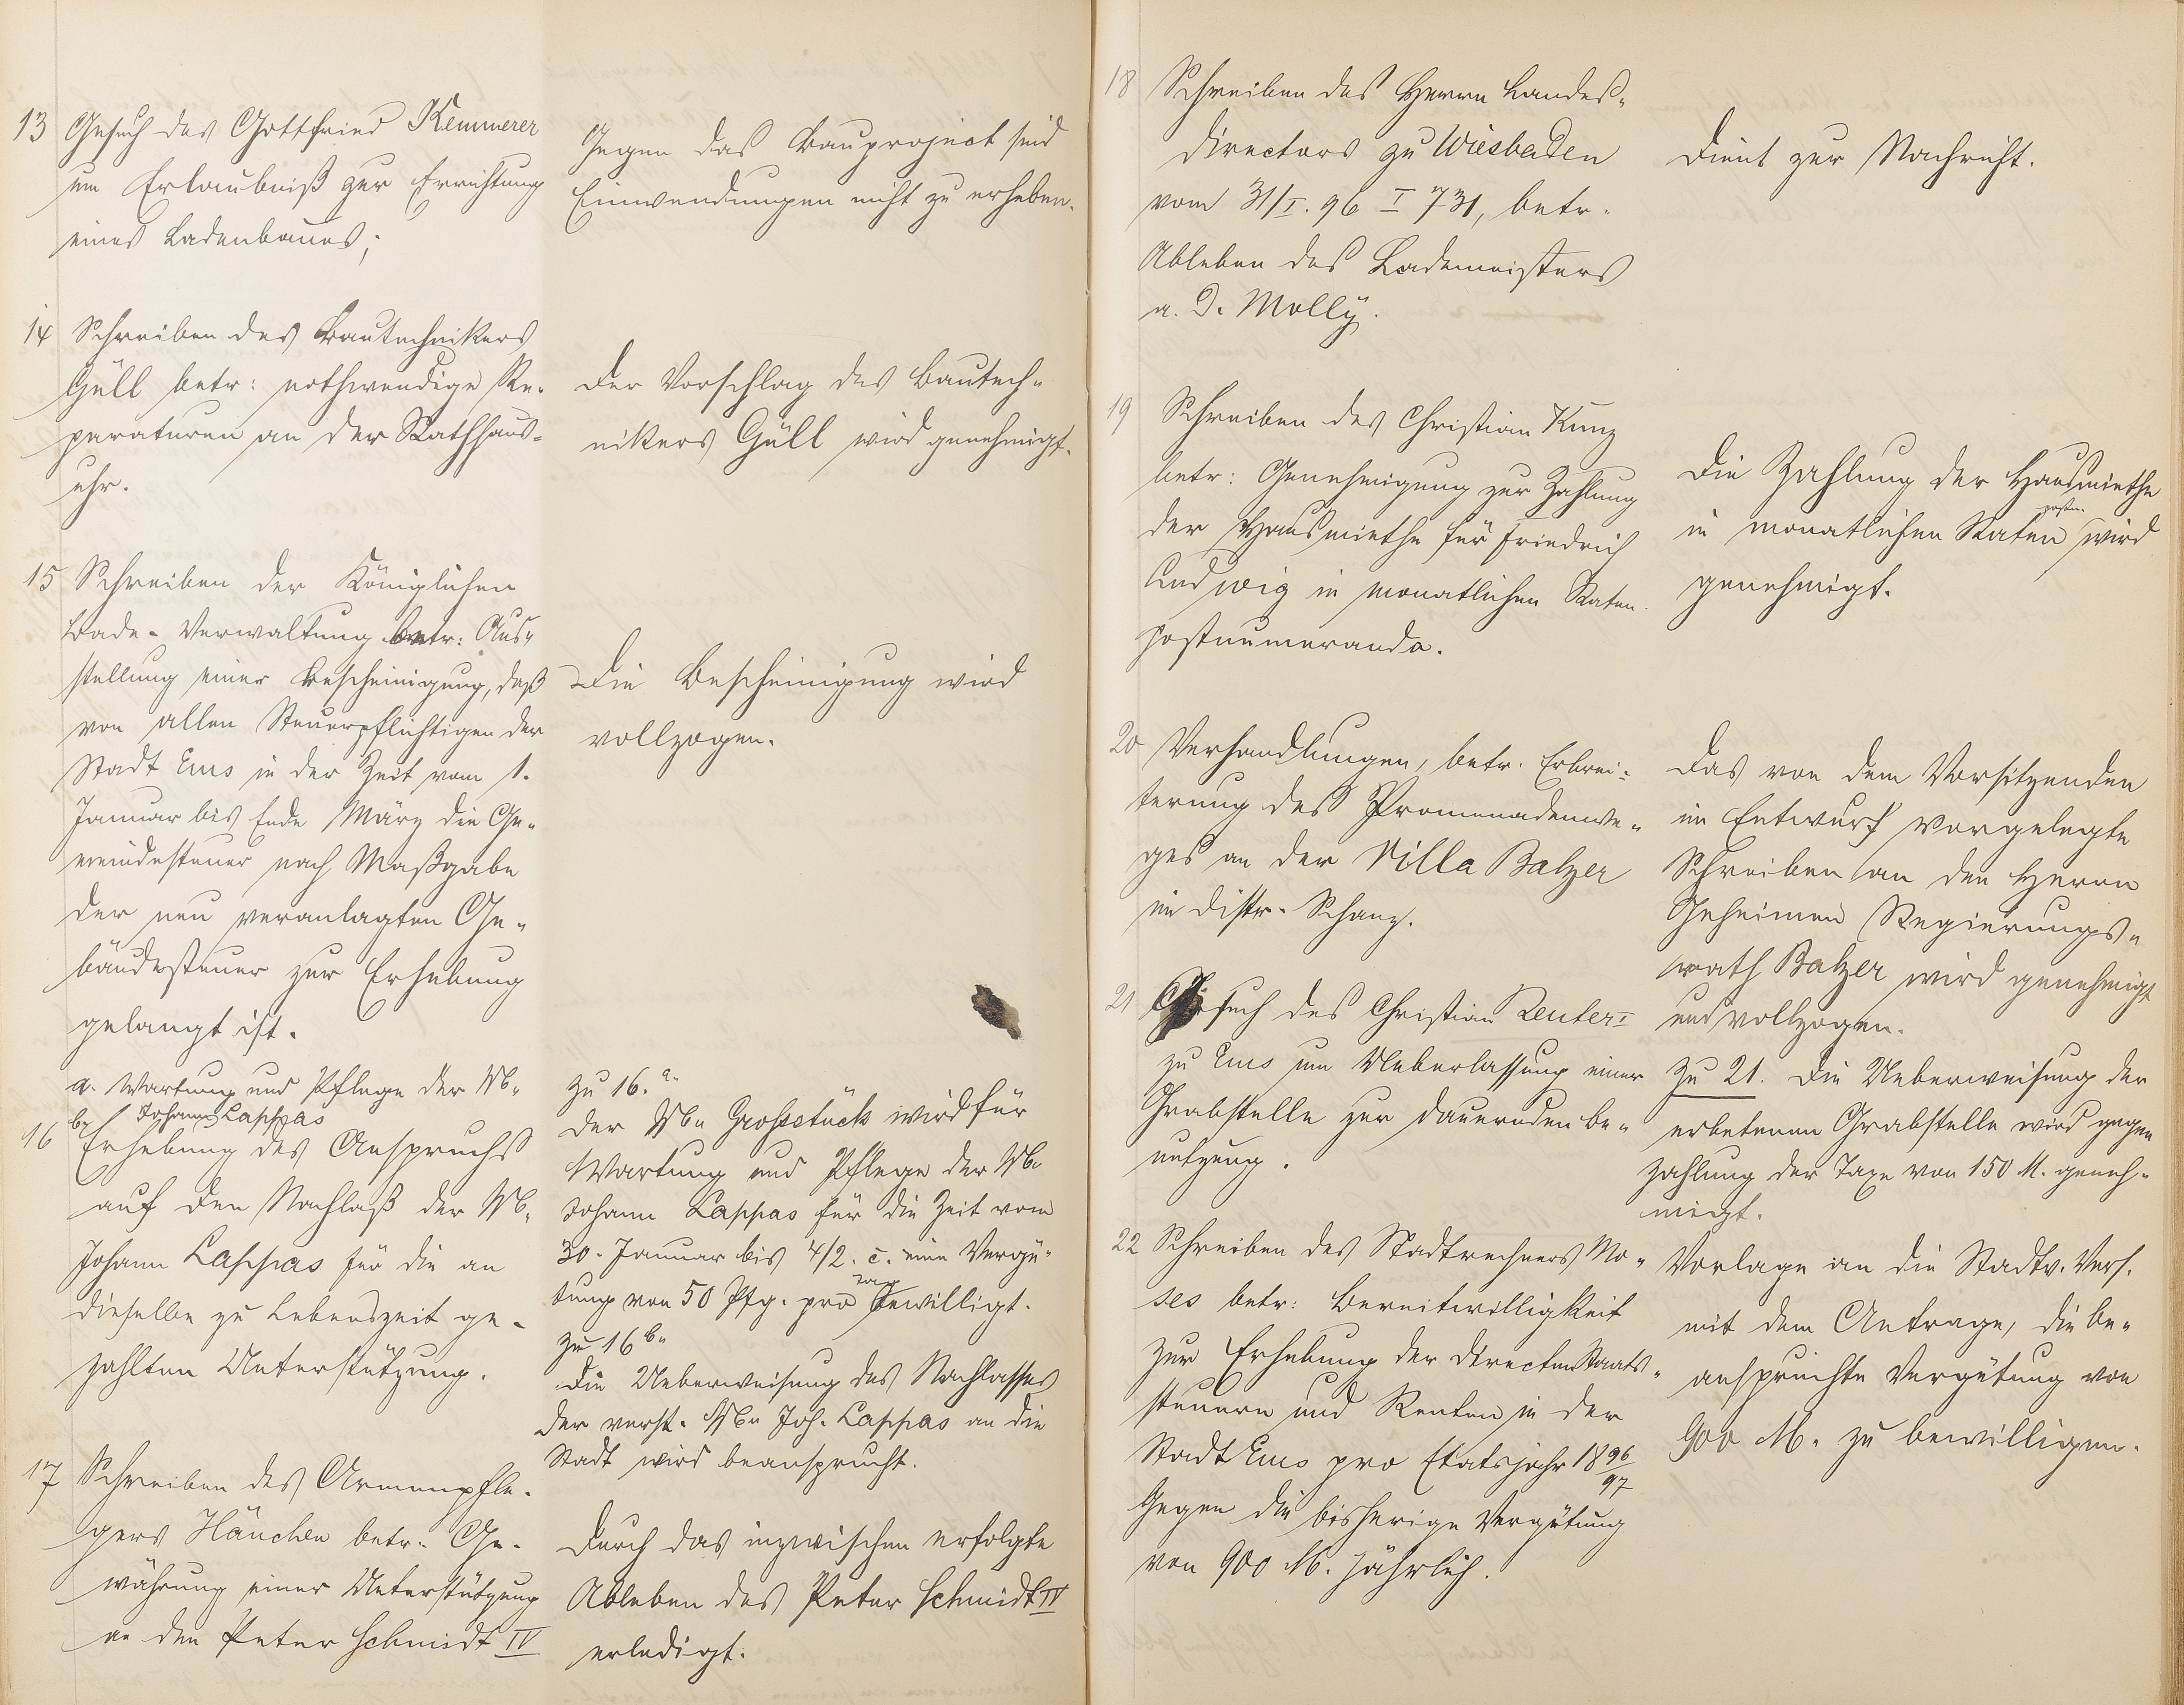 13 Gesuch des Gottfried Kemmerer
um Erlaubniß zur Errichtung
eines Ladenbaues;
Gegen das Bauproject sind
Einwendungen nicht zu erheben.
14 Schreiben des Bautechnikers
Güll betr: nothwendige Re-
paraturen an der Rathhaus-
uhr.
Der Vorschlag des Bautech-
nikers Güll wird genehmigt.
15 Schreiben der Königlichen
Bade-Verwaltung betr: Aus-
stellung einer Bescheinigung, daß
von allen Steuerpflichtigen der
Stadt Ems in der Zeit vom 1.
Januar bis Ende März die Ge-
meindesteuer nach Maßgabe
der neu veranlagten Ge-
bäudesteuer zur Erhebung
gelangt ist.
Die Bescheinigung wird
vollzogen.
a. Wartung und Pflege der Wb.
Johann Lappas
16 b. Erhebung des Anspruchs
auf den Nachlaß der Wb.
Johann Lappas für die an
dieselbe zu Lebenszeit ge-
zahlten Unterstützung.
Zu 16.a.
Der Wb. Großstück wird für
Wartung und Pflege der Wb.
Johann Lappas für die Zeit vom
30. Januar bis 4/2. c. eine Vergü-
tung von 50 Pfg. pro Tag bewilligt.
Zu 16 b.
Die Ueberweisung des Nachlasses
der verst. Wb. Joh. Lappas an die
Stadt wird beansprucht.
17 Schreiben des Armenpfle-
gers Hänchen betr. Ge-
währung einer Unterstützung
an den Peter Schmidt IV
Durch das inzwischen erfolgte
Ableben des Peter Schmidt IV
erledigt.
18 Schreiben des Herrn Landes-
directors zu Wiesbaden
vom 31/I. 96 I 731, betr.
Ableben des Lademeisters
a. D. Molly.
Dient zur Nachricht.
19 Schreiben des Christian Kunz
betr: Genehmigung zur Zahlung
der Hausmiethe für Friedrich
Ludwig in monatlichen Raten
postnumerando.
Die Zahlung der Hausmiethe
in monatlichen Raten postn. wird
genehmigt.
20 Verhandlungen, betr. Erbrei-
terung des Promenadenwe-
ges an der Villa Balzer
im Distr. Schanz.
Das von dem Vorsitzenden
im Entwurf vorgelegte
Schreiben an den Herrn
Geheimen Regierungs-
rath Balzer wird genehmigt
und vollzogen.
21 Gesuch des Christian Reuter I
zu Ems um Ueberlassung einer
Grabstelle zur dauernden Be-
nutzung.
Zu 21. Die Ueberweisung der
erbetenen Grabstelle wird gegen
Zahlung der Taxe von 150 M. geneh-
migt.
22 Schreiben des Stadtrechners Mo-
ses betr: Bereitwilligkeit
zur Erhebung der directen Staats-
steuern und Renten in der
Stadt Ems pro Etatsjahr 1896/97
gegen die bisherige Vergütung
von 900 M. jährlich.
Vorlage an die Stadtv. Vers.
mit dem Antrage, die be-
anspruchte Vergütung von
900 M. zu bewilligen.